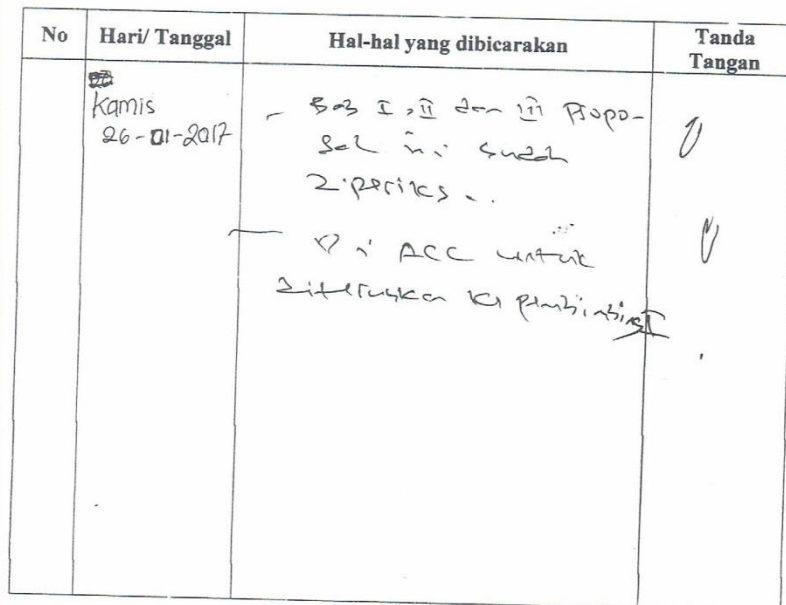 No Hari/ Tanggal Hal-hal yang dibicarakan Tanda Tangan
Kamis
26-01-2017
- Bab I, II dan III Propo-
sal ini sudah
diperiksa.
- Di ACC untuk
diteruskan ke pembimbing I